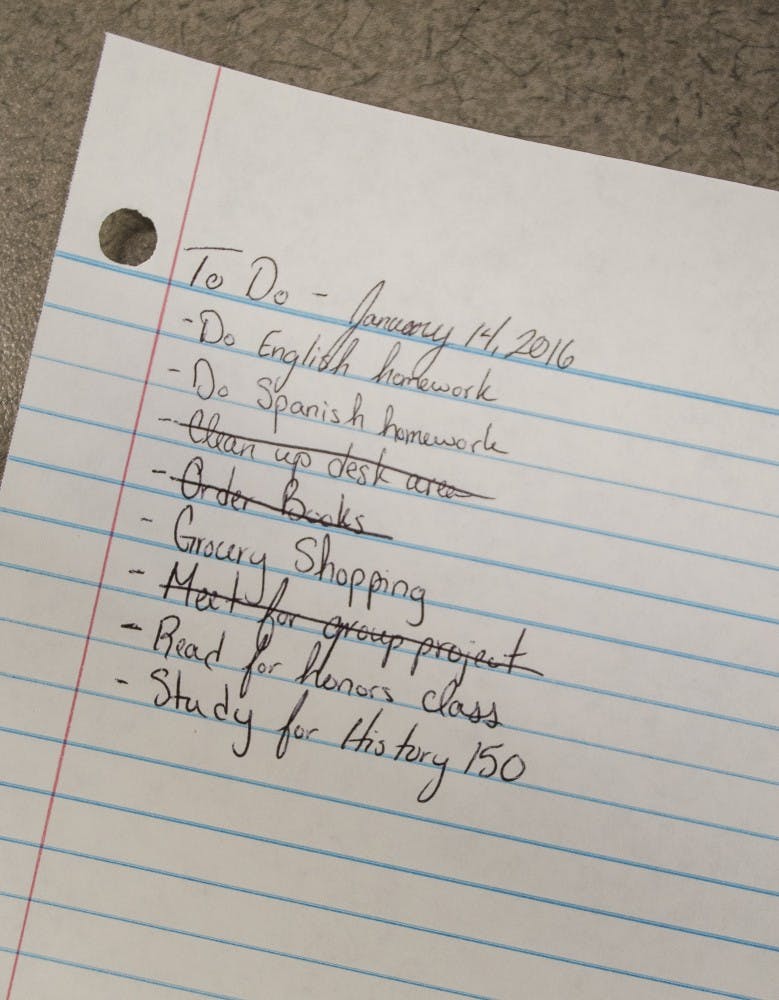 To Do - January 14, 2016
- Do English homework
- Do Spanish homework
- Clean up desk area
- Order Books
- Grocery Shopping
- Meet for group project
- Read for Honors class
- Study for History 150